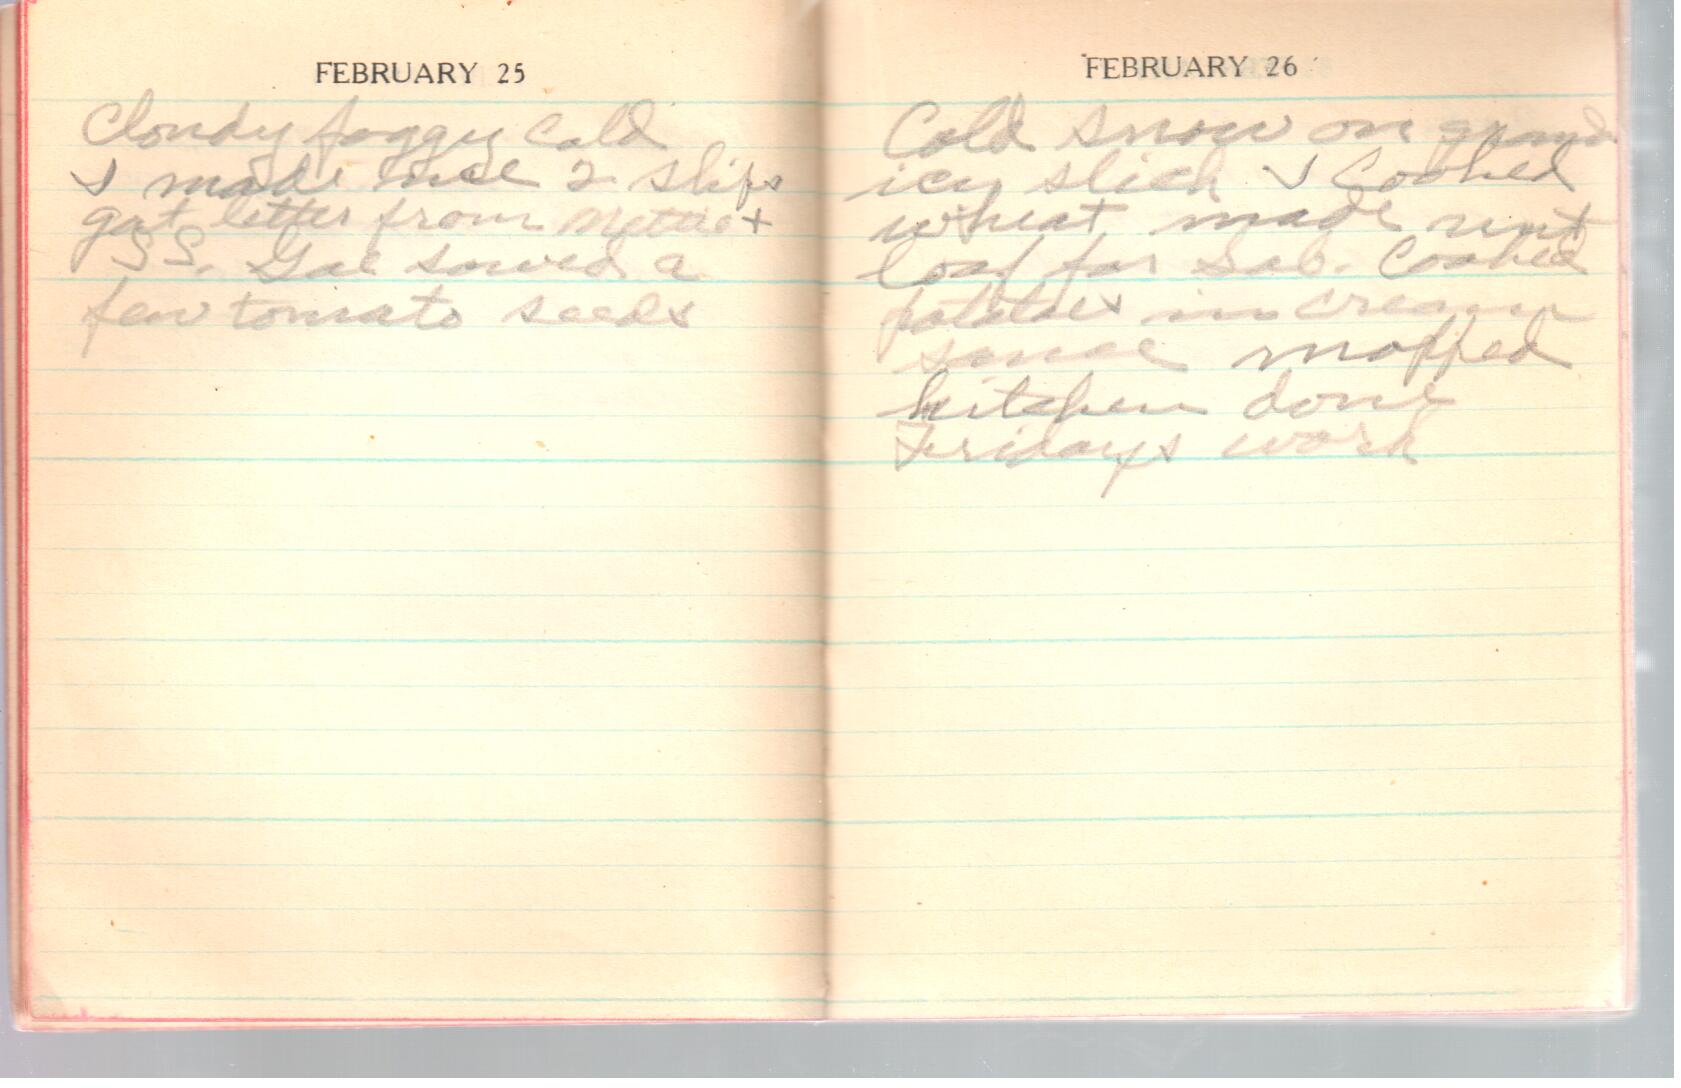 FEBRUARY 25
Cloudy foggy Cold
I made me 2 slips
got letter from Nettie +
SS. Gae sowed a
few tomato seeds
FEBRUARY 26
Cold snow on ground
icy slick I Cooked
wheat made nut
loaf for Sab. Cooked
potatoes in cream
sauce mopped
kitchen done
Fridays work